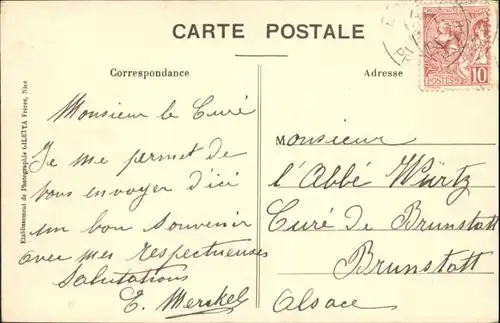 CARTE POSTALE
Correspondance
Adresse
Monsieur le Curé
Je me permet de
vous envoyer d'ici
un bon souvenir
avec mes respectueuses
Salutations
E. Merckel
Monsieur
l'Abbé Würtz
Curé de Brunstatt
Brunstatt
Alsace
Etablissement de Photographie GILETTA Frères, Nice
POSTES
10